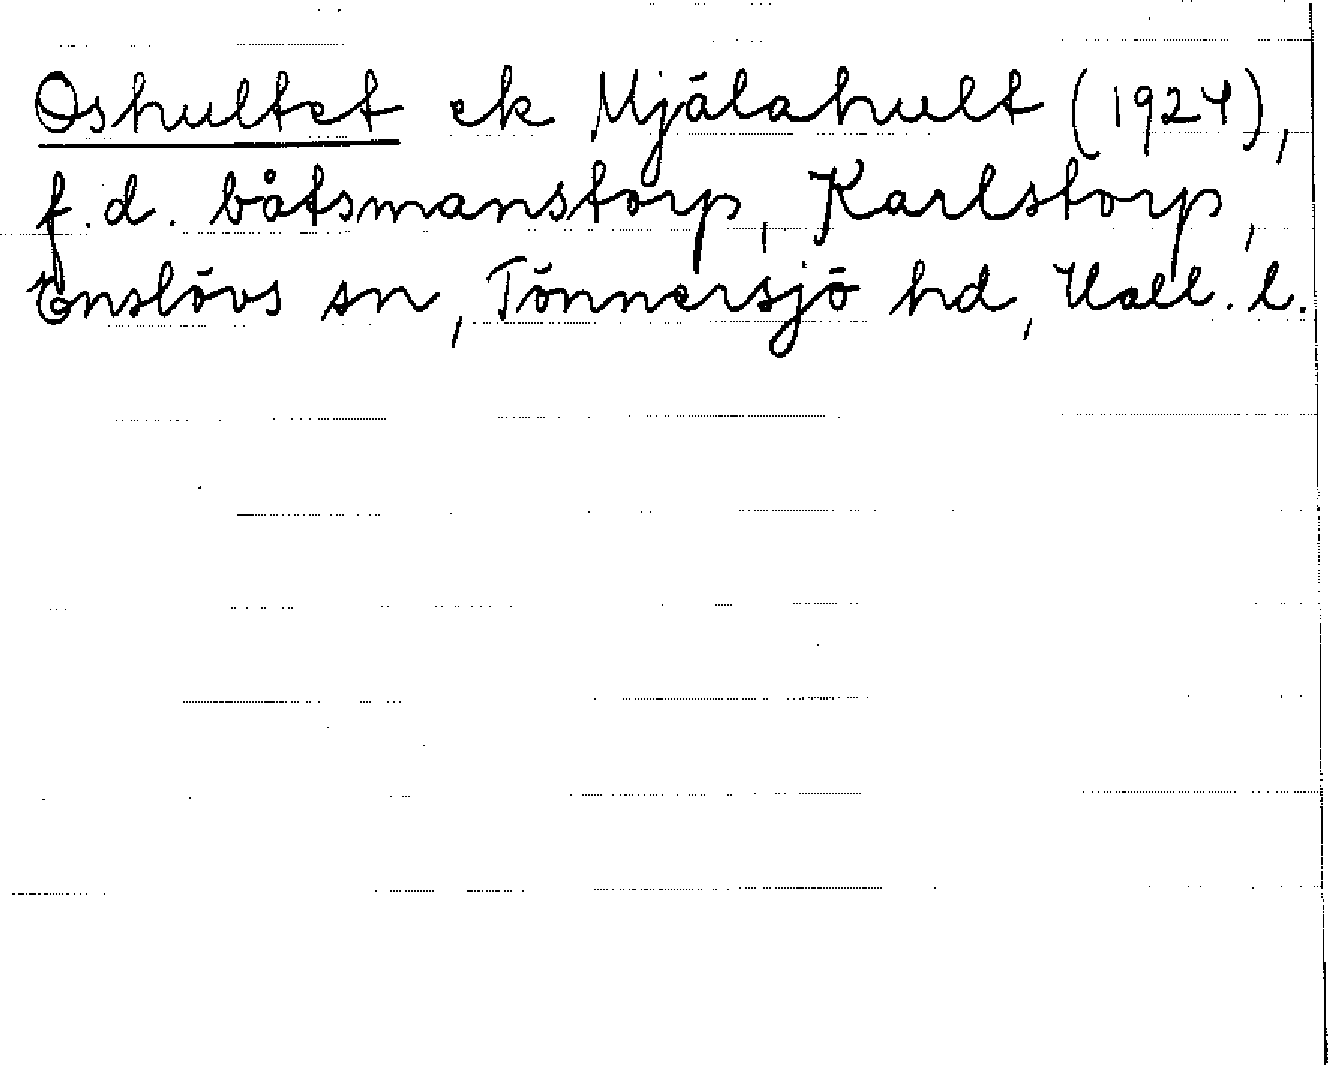 Oshultet ek Mjälahult (1924),
f.d. båtsmanstorp, Karlstorp,
Enslövs sn, Tönnersjö hd, Hall. l.